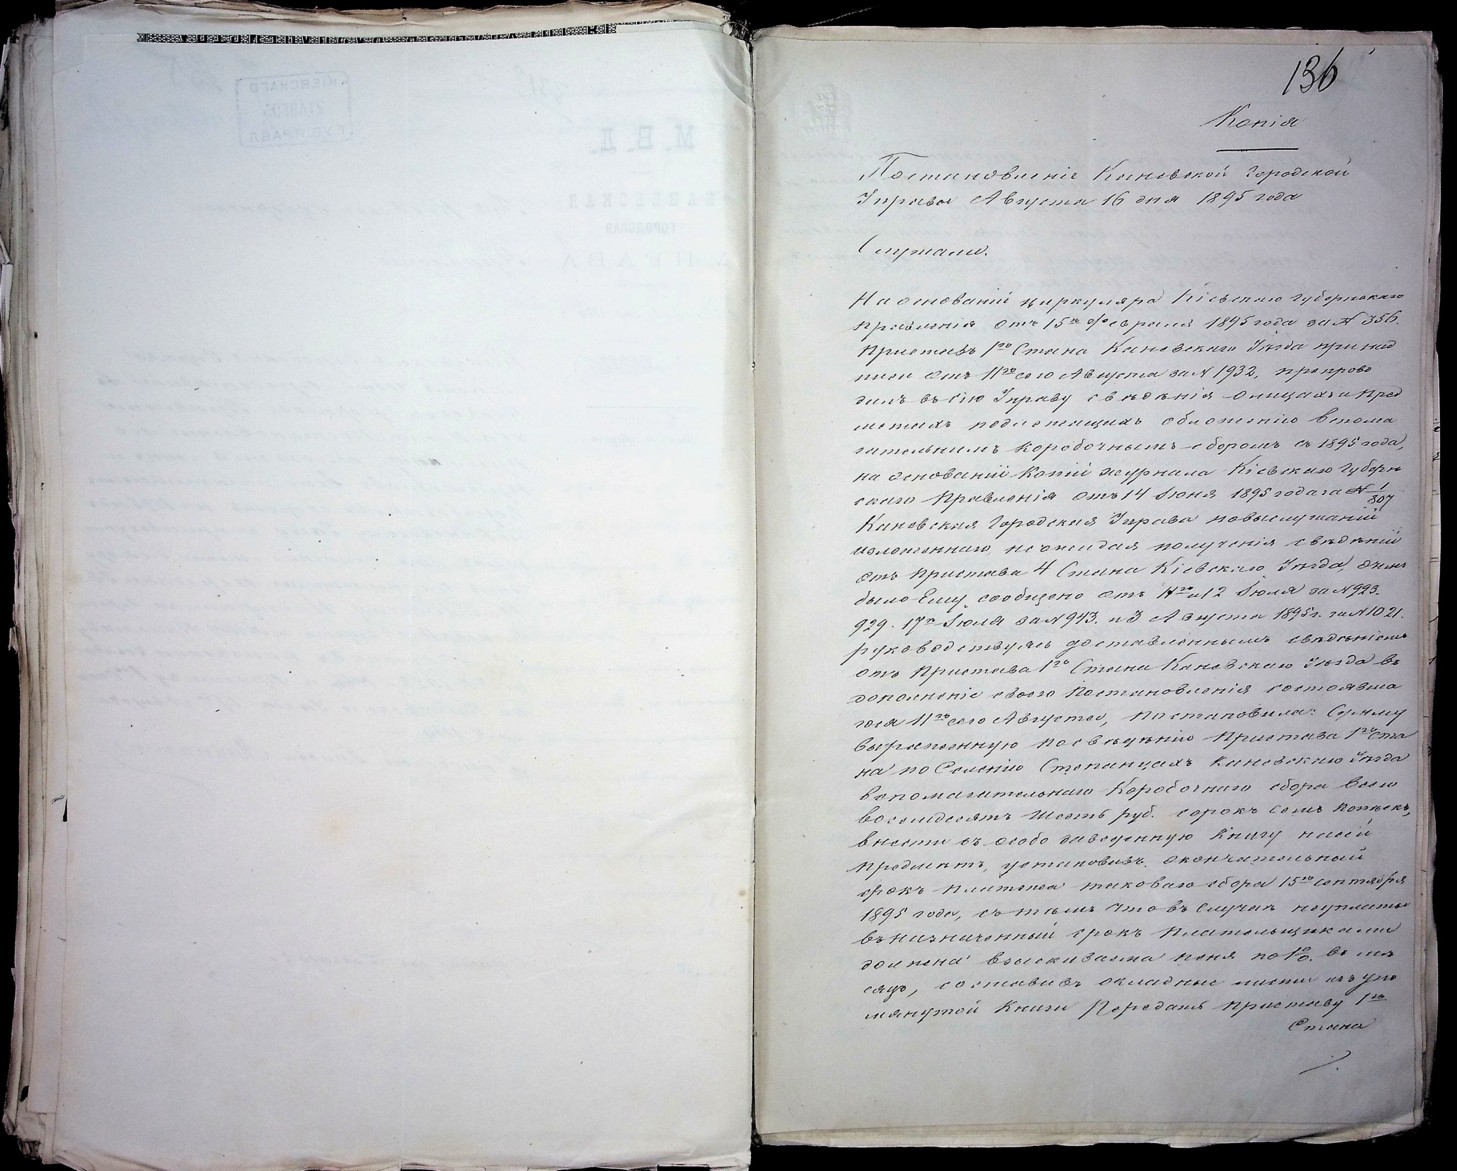 136
Копія
Постановленіе Каневской Городской
Управы Августа 16 дня 1895 года
Слушали.
На основаніи циркуляра Кіевскаго Губернскаго
Правленія отъ 15го февраля 1895 года за № 356.
Приставъ 1го Стана Каневскаго Уѣзда при над
писи отъ 11го сего Августа за № 1932, препрово
дилъ въ сію Управу свѣдѣнія о лицахъ и пред
метахъ подлежащихъ обложенію вспома
гательнымъ коробочнымъ сборомъ съ 1895 года,
на основаніи копіи журнала Кіевскаго Губерн
скаго Правленія отъ 14 Іюня 1895 года за № 1/807
Каневская Городская Управа по выслушаніи
изложеннаго, не ожидая полученія свѣдѣній
отъ Пристава 4 Стана Кіевскаго Уѣзда, о чемъ
было Ему сообщено отъ 11го и 12 Іюля за № 923.
929. 17го Іюля за № 943. и 3 Августа 1895 г. за № 1021.
руководствуясь доставленнымъ свѣдѣніемъ
отъ Пристава 1го Стана Каневскаго Уѣзда въ
дополненіе своего Постановленія состоявша
гося 11го сего Августа, постановила: Сумму
выраженную по свѣдѣнію Пристава 1го Ста
на по Селенію Степанцахъ Каневскаго Уѣзда
вспомагательнаго Коробочнаго сбора всего
восемдесятъ шесть руб. сорокъ семъ копѣекъ,
внести въ особо заведенную книгу на сей
предметъ, установивъ окончательный
срокъ платежа таковаго сбора 15го Сентября
1895 года, съ тѣмъ что въ случаѣ неуплаты
въ назначенный срокъ плательщиками
должна взыскиваема пеня по 1%. въ мѣ
сяцъ, составивъ окладные листы изъ упо
мянутой книги Передать Приставу 1го
Стана